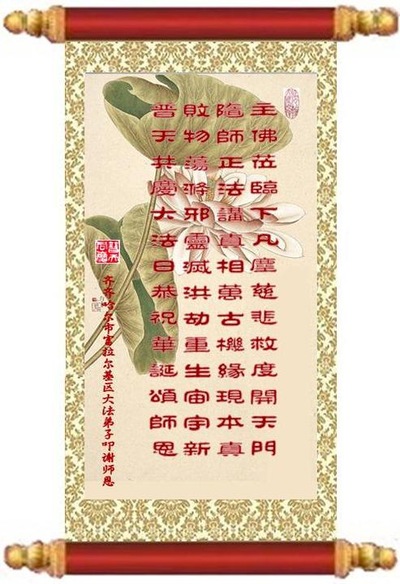 主佛莅臨下凡塵慈悲救度開天門
隨師正法講真相萬古機緣現本真
敗物蕩滌邪靈滅洪劫重生宙宇新
普天共慶大法日恭祝華誕頌師恩
齐齐哈尔市富拉尔基区大法弟子叩谢师恩